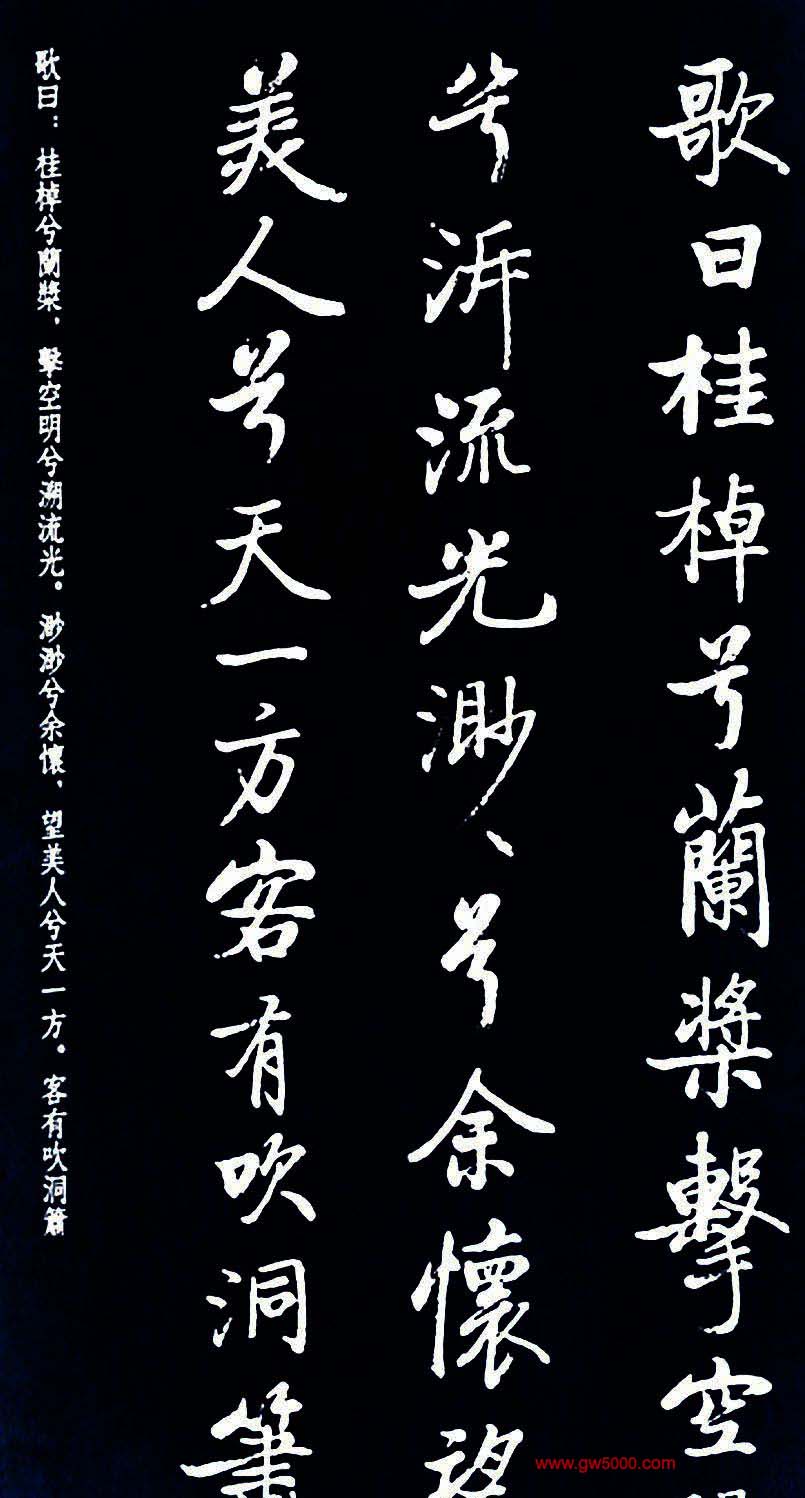 歌曰桂棹兮蘭槳擊空
兮泝流光渺、兮余懷望
美人兮天一方客有吹洞簫
歌曰：桂棹兮蘭槳，擊空明兮溯流光。渺渺兮余懷，望美人兮天一方。客有吹洞簫
www.gw5000.com